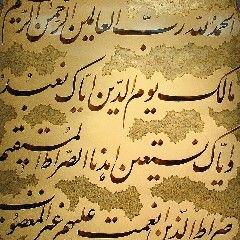 الحمد لله رب العالمین الرحمن الرحیم
مالک یوم الدین ایاک نعبد
و ایاک نستعین اهدنا الصراط المستقیم
صراط الذین انعمت علیهم غیر المغضوب